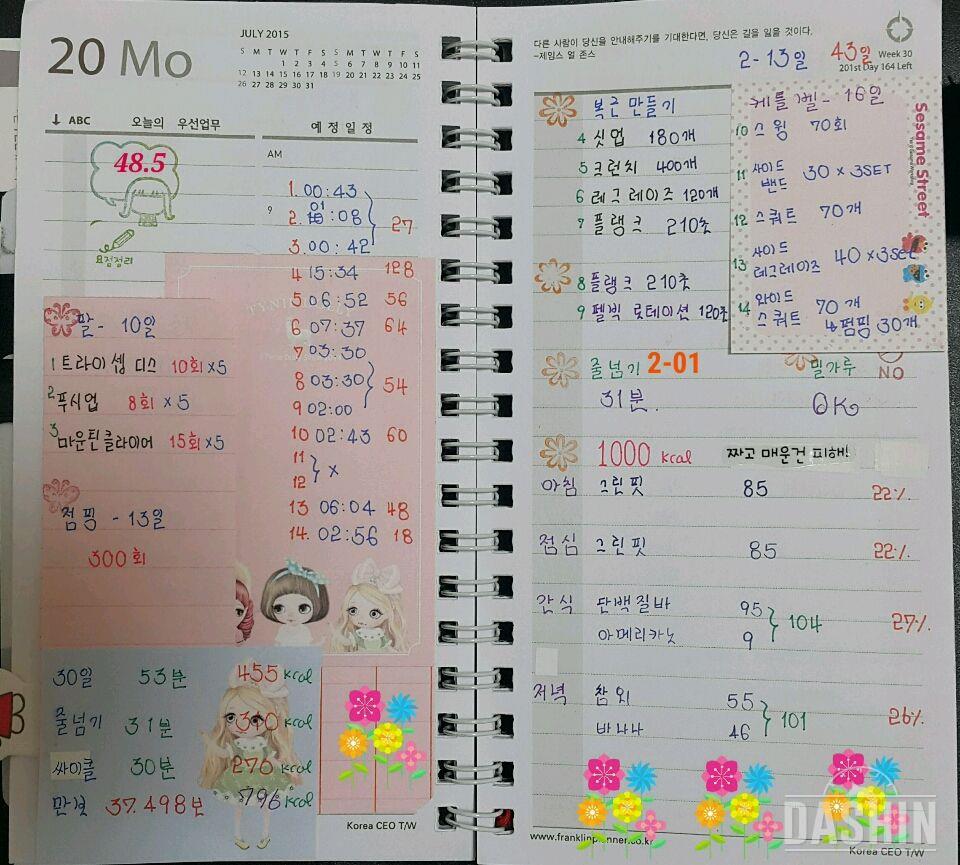 20 Mo
JULY 2015
S M T W T F S S M T W T F S
1 2 3 4 5 6 7 8 9 10 11
12 13 14 15 16 17 18 19 20 21 22 23 24 25
26 27 28 29 30 31
↓ ABC 오늘의 우선업무
예 정 일 정
48.5
요점정리
AM
9
1. 00:43
2. 01:08
3. 00:42
27
4 15:34 128
5 06:52 56
6 07:37 64
7 03:30
8 03:30
9 02:00
54
10 02:43 60
11
12
x
13 06:04 48
14. 02:56 18
팔- 10일
1 트라이셉 디스 10회 x5
2 푸시업 8회 x 5
3 마운틴클라이머 15회 x5
점핑 - 13일
300회
30일 53분 455 kcal
줄넘기 31분 310 kcal
싸이클 30분 276 kcal
만보 37.498보 796 kcal
Korea CEO T/W
다른 사람이 당신을 안내해주기를 기대한다면, 당신은 길을 잃을 것이다.
-제임스 얼 존스
2-13일 43일
Week 30
201st Day 164 Left
복근 만들기
4 싯업 180개
5 크런치 400개
6 레그레이즈 120개
7 플랭크 210초
8 플랭크 210초
9 펠빅 로테이션 120초
케틀벨- 16일
10 스윙 70회
11 사이드 밴드 30 x 3SET
12 스쿼트 70개
13 사이드 레그레이즈 40 x 3set
14 와이드 스쿼트 70개
4 펌핑 30개
Sesame Street
줄넘기 2-01
31분.
밀가루 NO
OK
1000 kcal 짜고 매운건 피해!
아침 그린핏 85 22%
점심 그린핏 85 22%.
간식 단백질바 95
아메리카노 9
104 27%.
저녁 참외 55
바나나 46
101 26%
www.franklinplanner.co.kr
DASHIN
Korea CEO T/W